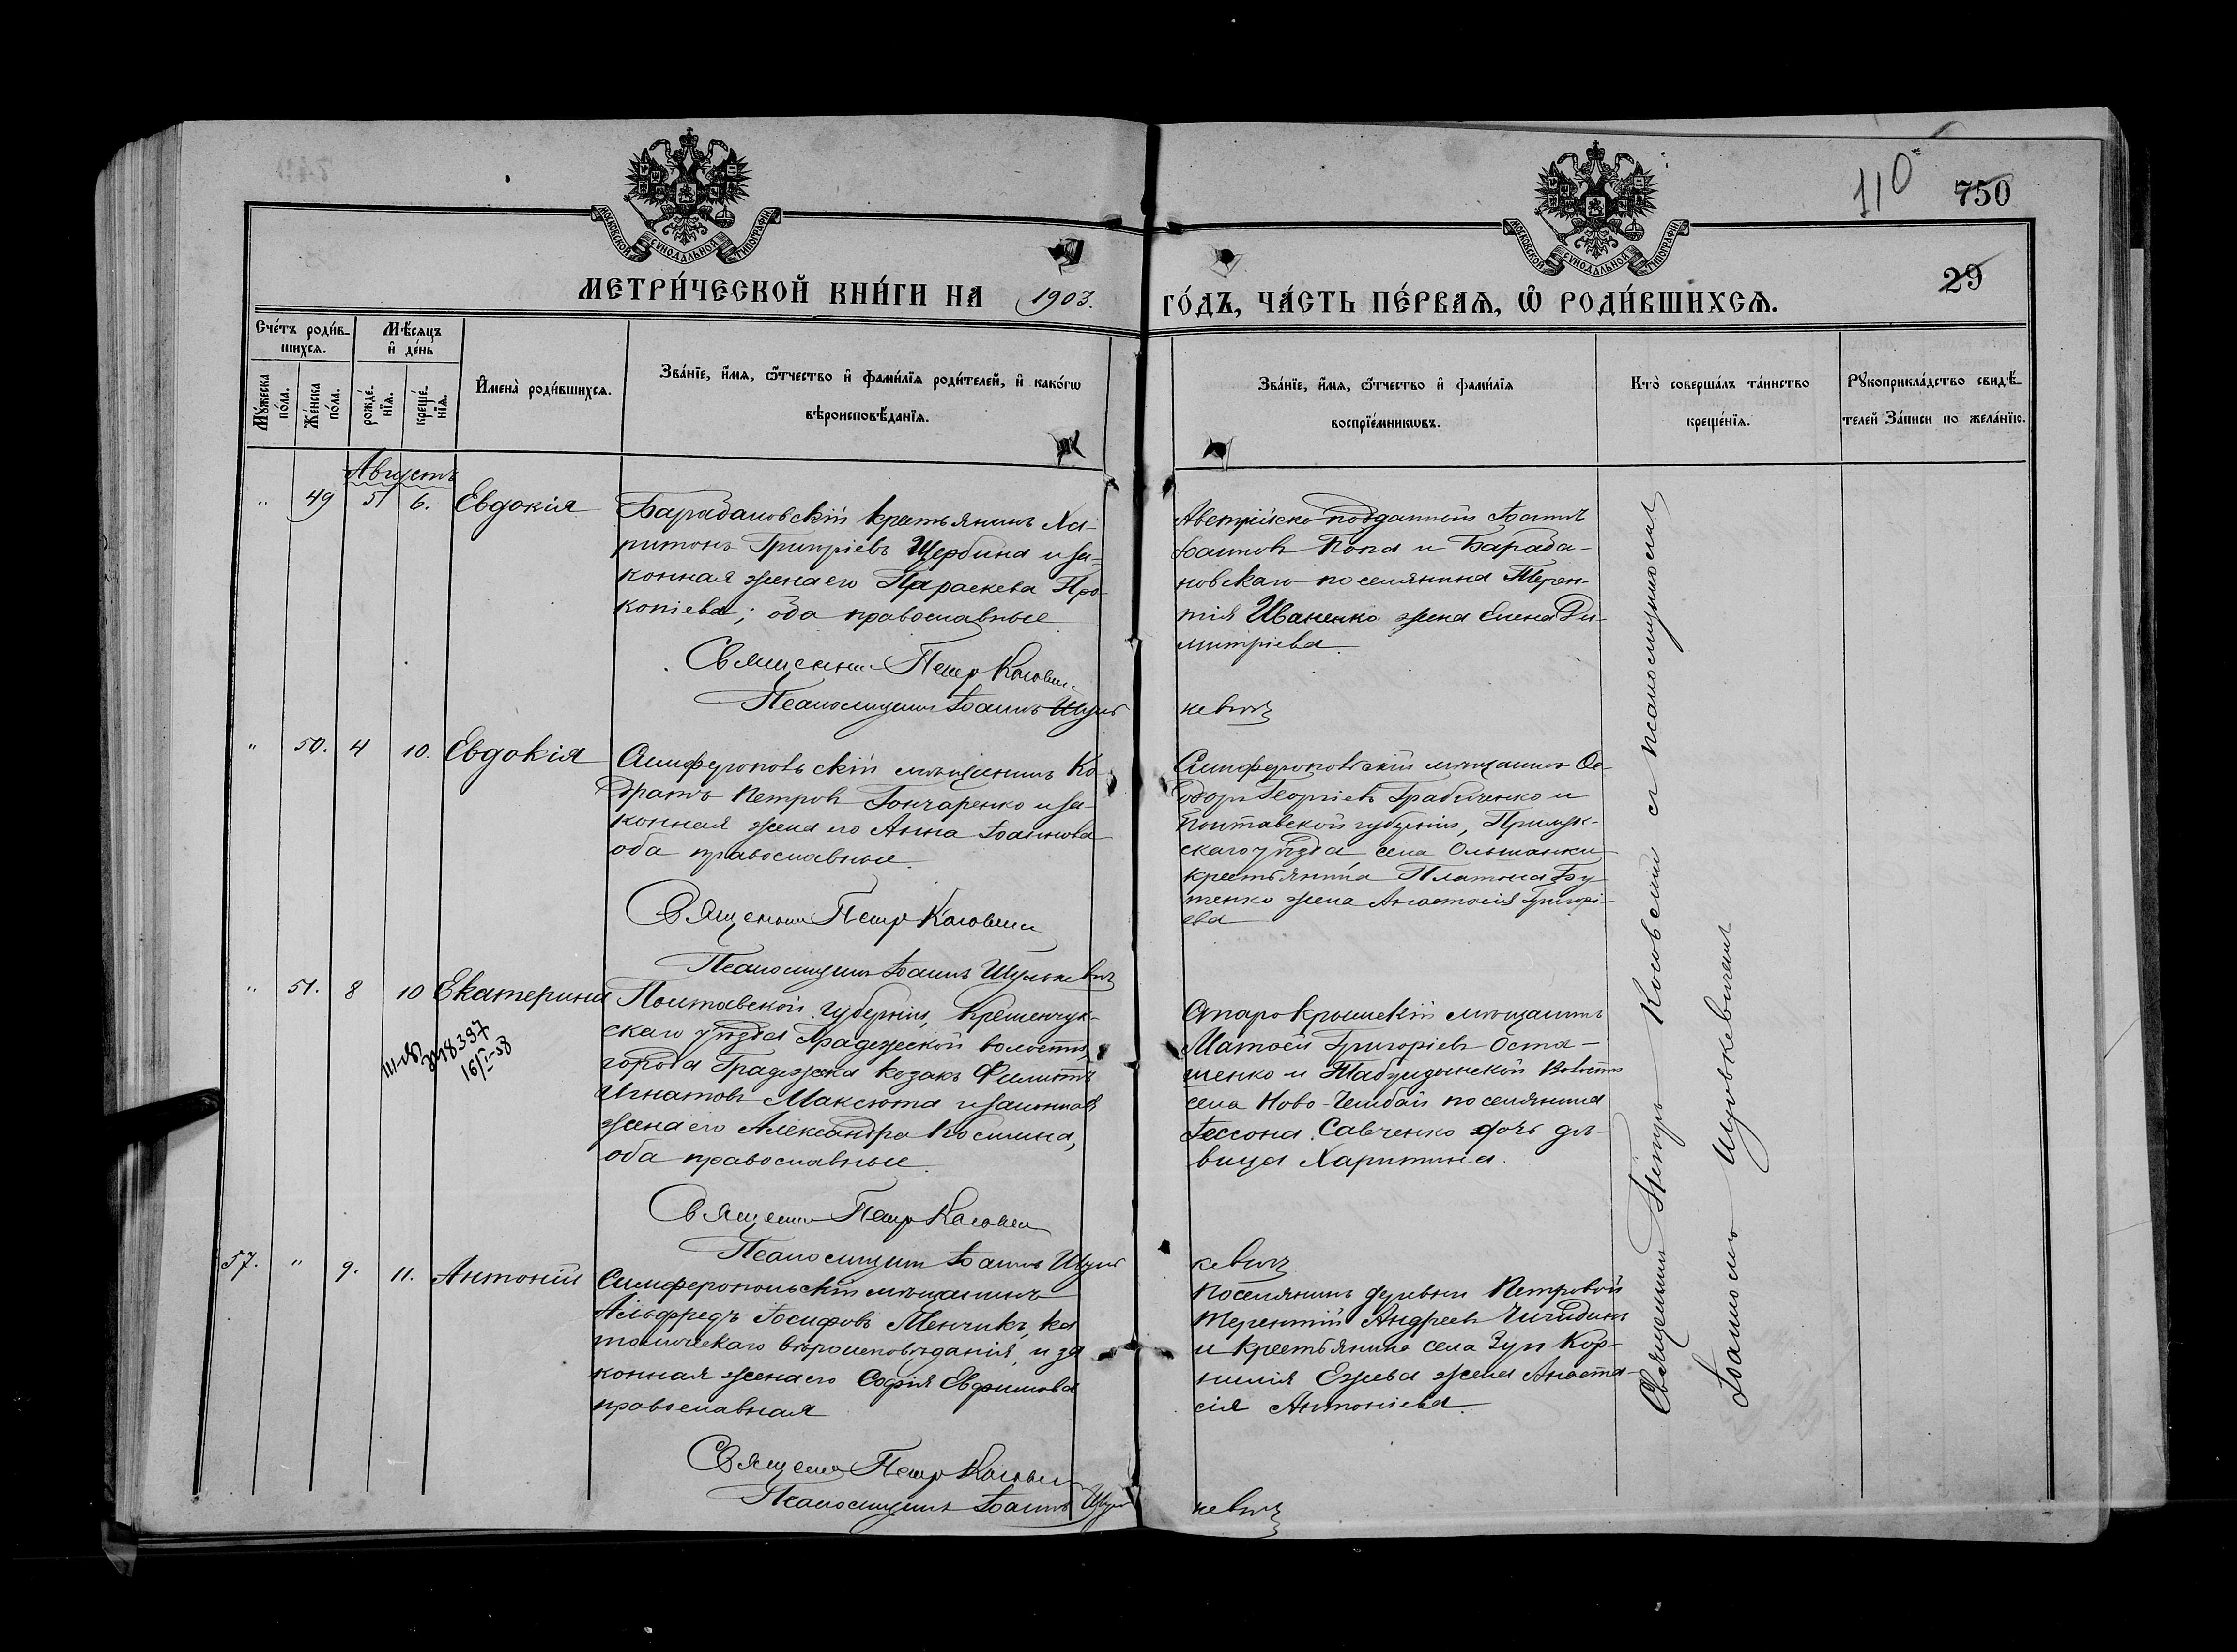 110
750
29
МОСКОВСКОЙ СѴНОДАЛЬНОЙ ТИПОГРАФІИ
МОСКОВСКОЙ СѴНОДАЛЬНОЙ ТИПОГРАФІИ
МЕТРИ́ЧЕСКОЙ КНИ́ГИ НА 1903. ГО́ДЪ, ЧА́СТЬ ПЕ́РВАѦ, Ѡ РОДИ́ВШИХСѦ.
Сче́тъ роди́в-
шихсѧ.
Мѣ́сѧцъ
и҆ де́нь
Мꙋ́жеска
по́ла.
Же́нска
по́ла.
рожде́-
нїѧ.
креще́-
нїѧ.
И҆мена̀ роди́вшихсѧ.
Зва́нїе, и҆́мѧ, ѿтчество и҆ фами́лїѧ роди́телей, и҆ како́гѡ
вѣроисповѣ́данїѧ.
Зва́нїе, и҆́мѧ, ѿтчество и҆ фами́лїѧ
воспрїе́мникѡвъ.
Кто̀ соверша́лъ та́инство
креще́нїѧ.
Рꙋкоприкла́дство свидѣ́-
телей За́писи по жела́нїю.
Августъ
" 49 5 6. Евдокія
Барабановскій крестьянинъ Ха-
ритонъ Григоріевъ Щербина и за-
конная жена его Параскева Про-
копіева; оба православные
Священникъ Петръ Косовскій
Псаломщикъ Іоаннъ Шуль
Австрійско подданный Іоаннъ
Іоанновъ Попа и Бараба-
новскаго поселянина Терен-
тія Иваненко жена Елена Ди-
митріева.
кевичъ
" 50. 4 10. Евдокія
Симферопольскій мѣщанинъ Ко-
дратъ Петровъ Гончаренко и за-
конная жена его Анна Іоаннова
оба православные.
Священникъ Петръ Косовскій
Псаломщикъ Іоаннъ Шулькевичъ
Симферопольскій мѣщанинъ Ѳе-
одоръ Георгіевъ Грабиченко и
Полтавской губерніи, Прилук-
скаго уѣзда села Ольшанки
крестьянина Платона Бу-
тенко жена Анастасія Григорі-
ева
" 51. 8 10 Екатерина
16/I-38
Полтавской губерніи, Кременчуг-
скаго уѣзда Градежской волости,
города Градежска козакъ Филиппъ
Игнатовъ Максюта и законная
жена его Александра Космина,
оба православные.
Священникъ Петръ Косовскій
Псаломщикъ Іоаннъ Шуль
Старокрымскій мѣщанинъ
Матѳей Григоріевъ Оста-
шенко и Табулдынской волости
села Ново-Чембай поселянина
Іессона Савченко дочь дѣ-
вица Харитина.
кевичъ
57. " 9. 11. Антоній
Симферопольскій мѣщанинъ
Альфредъ Іосифовъ Менчикъ, ка
толическаго вѣроисповѣданія, и за
конная жена его Софія Евфимова
православная
Священникъ Петръ Косовскій
Псаломщикъ Іоаннъ Шуль
Поселянинъ деревни Петровой
Терентій Андреевъ Чигидинъ
и крестьянина села Зуи Кор-
нилія Ежева жена Анаста-
сія Антоніева.
кевичъ
Священникъ Петръ Косовскій съ псаломщикомъ
Іоанномъ Шулькевичемъ